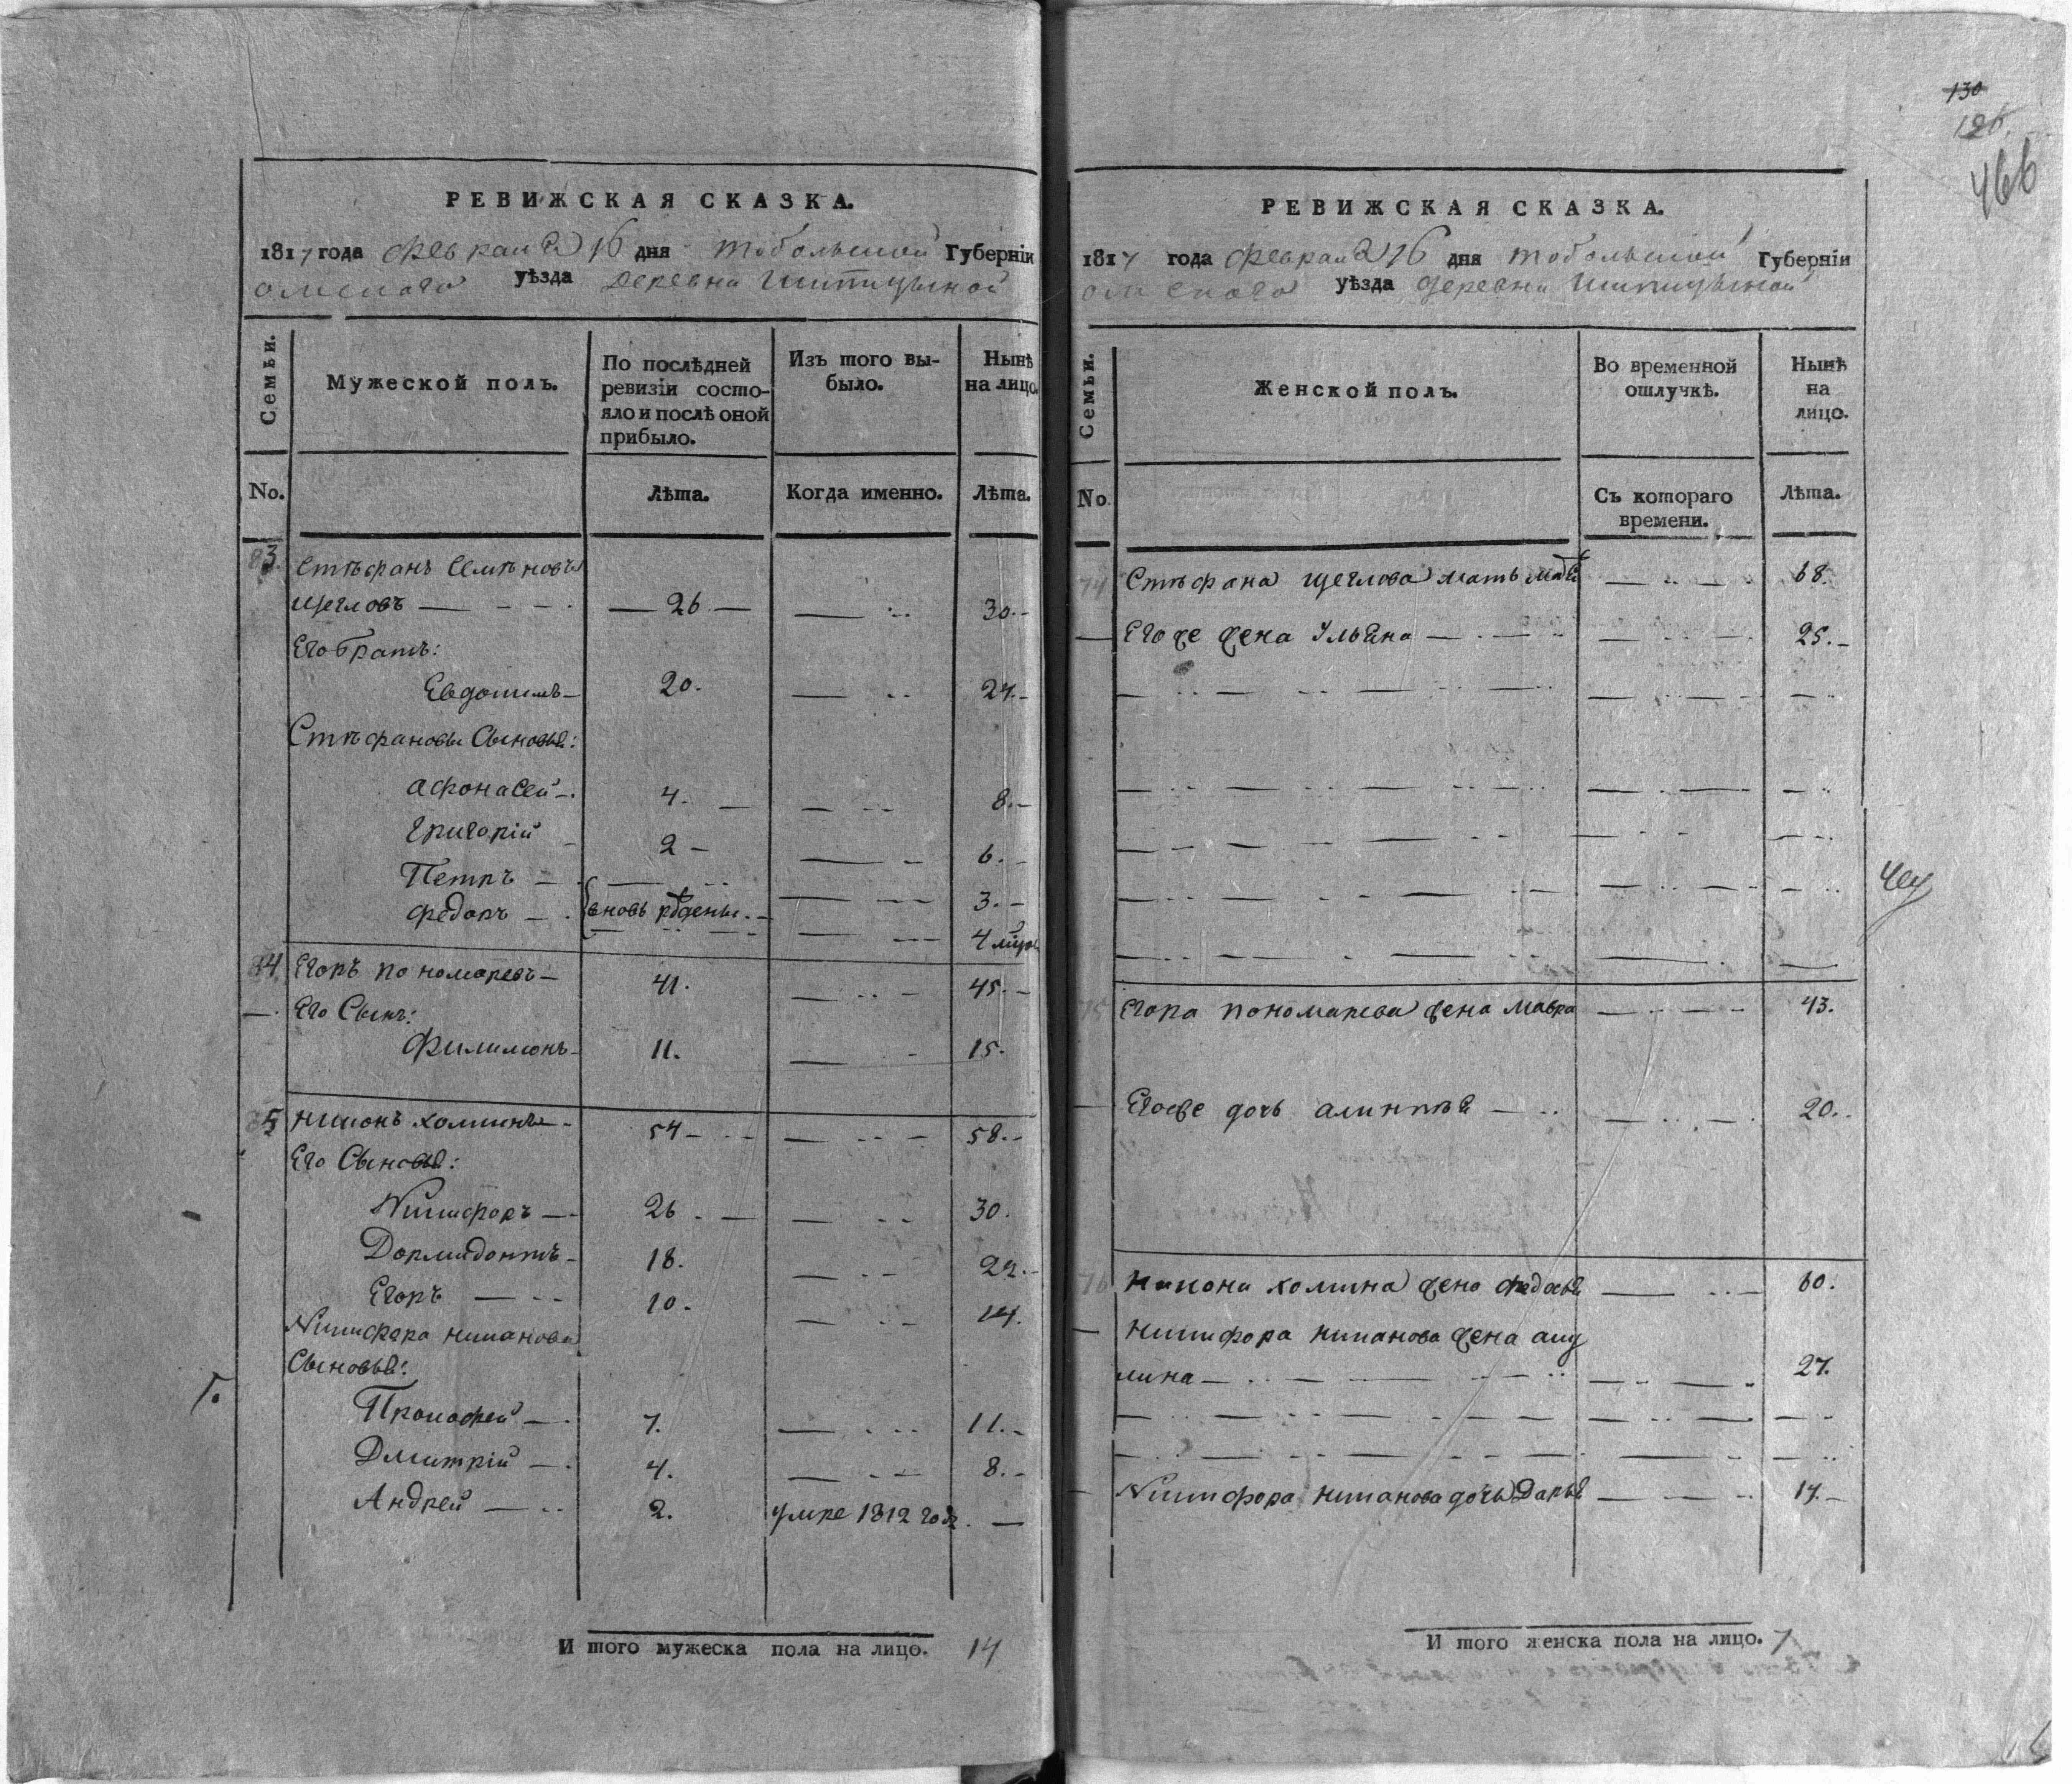 130
126.
466
РЕВИЖСКАЯ СКАЗКА.
1817 года февраля 16 дня Тобольской Губерніи
Омскаго уѣзда деревни Шипицыной
Семьи.
Мужеской полъ.
По послѣдней ревизіи состо-
яло и послѣ оной
прибыло.
Изъ того вы-
было.
Нынѣ
на лицо.
No.
Лѣта.
Когда именно.
Лѣта.
83. Стѣфанъ Семѣновъ
Щегловъ — 26 — 30.
Его братъ:
Евдокимъ — 20. — 24.
Стѣфановы Сыновья:
Афонасей — 4. — 8.
Григорій 2 — 6.
Петръ — 3.
Федоръ — вновь рождены. — 4 
84 Егоръ Пономаревъ — 41. — 45.
Его Сынъ:
Филимонъ 11. — 15.
85 Никонъ Хоминъ 54 — 58.
Его Сыновья:
Никифоръ — 26 — 30.
Дормидонтъ 18. — 22.
Егоръ — 10. — 14.
Никифора Никонова
Сыновья:
Г.
Прокофей — 7. — 11.
Дмитрій — 4. — 8.
Андрей — 2. умре 1812 года. —
И того мужеска пола на лицо. 14
РЕВИЖСКАЯ СКАЗКА.
1817 года февраля 16 дня Тобольской Губерніи
Омскаго уѣзда деревни Шипицыной
Семьи.
Женской полъ.
Во временной
отлучкѣ.
Нынѣ
на
лицо.
No.
Съ котораго
времени.
Лѣта.
74 Стѣфана Щеглова мать — 68.
Его же жена Ульяна — 25.
75 Егора Пономарева жена Мавра — 43.
Егоже дочь — 20.
76 Никона Хомина жена Федосья — 60.
Никифора Никонова жена аку
лина — 27.
Никифора Никонова дочь Дарья — 14.
И того женска пола на лицо. 7